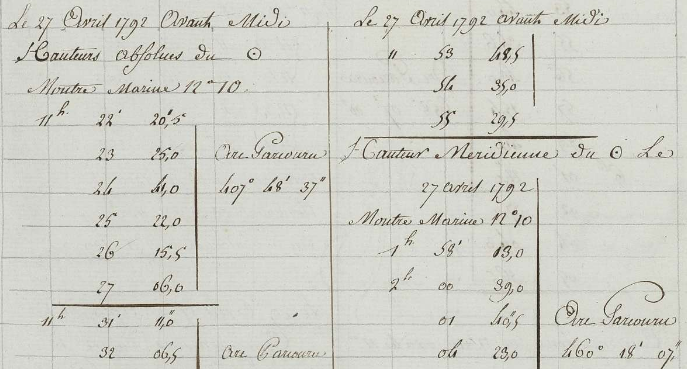 Le 27 Avril 1792 Avant Midi
Hauteurs absolues du ☉
Montre Marine N° 10.
11h 22' 20",5
23 25,0 Arc Parcouru
24 41,0 407° 48' 37"
25 22,0
26 15,5
27 06,0
11h 31' 11",0
32 06,5 Arc Parcouru
Le 27 Avril 1792 avant Midi
11 53 48,5
54 35,0
55 29,5
Hauteur Meridienne du ☉ Le
27 avril 1792
Montre Marine N° 10
1h 58' 13,0
2h 00 39,0
01 40",5 Arc Parcouru
04 23,0 460° 18' 07"